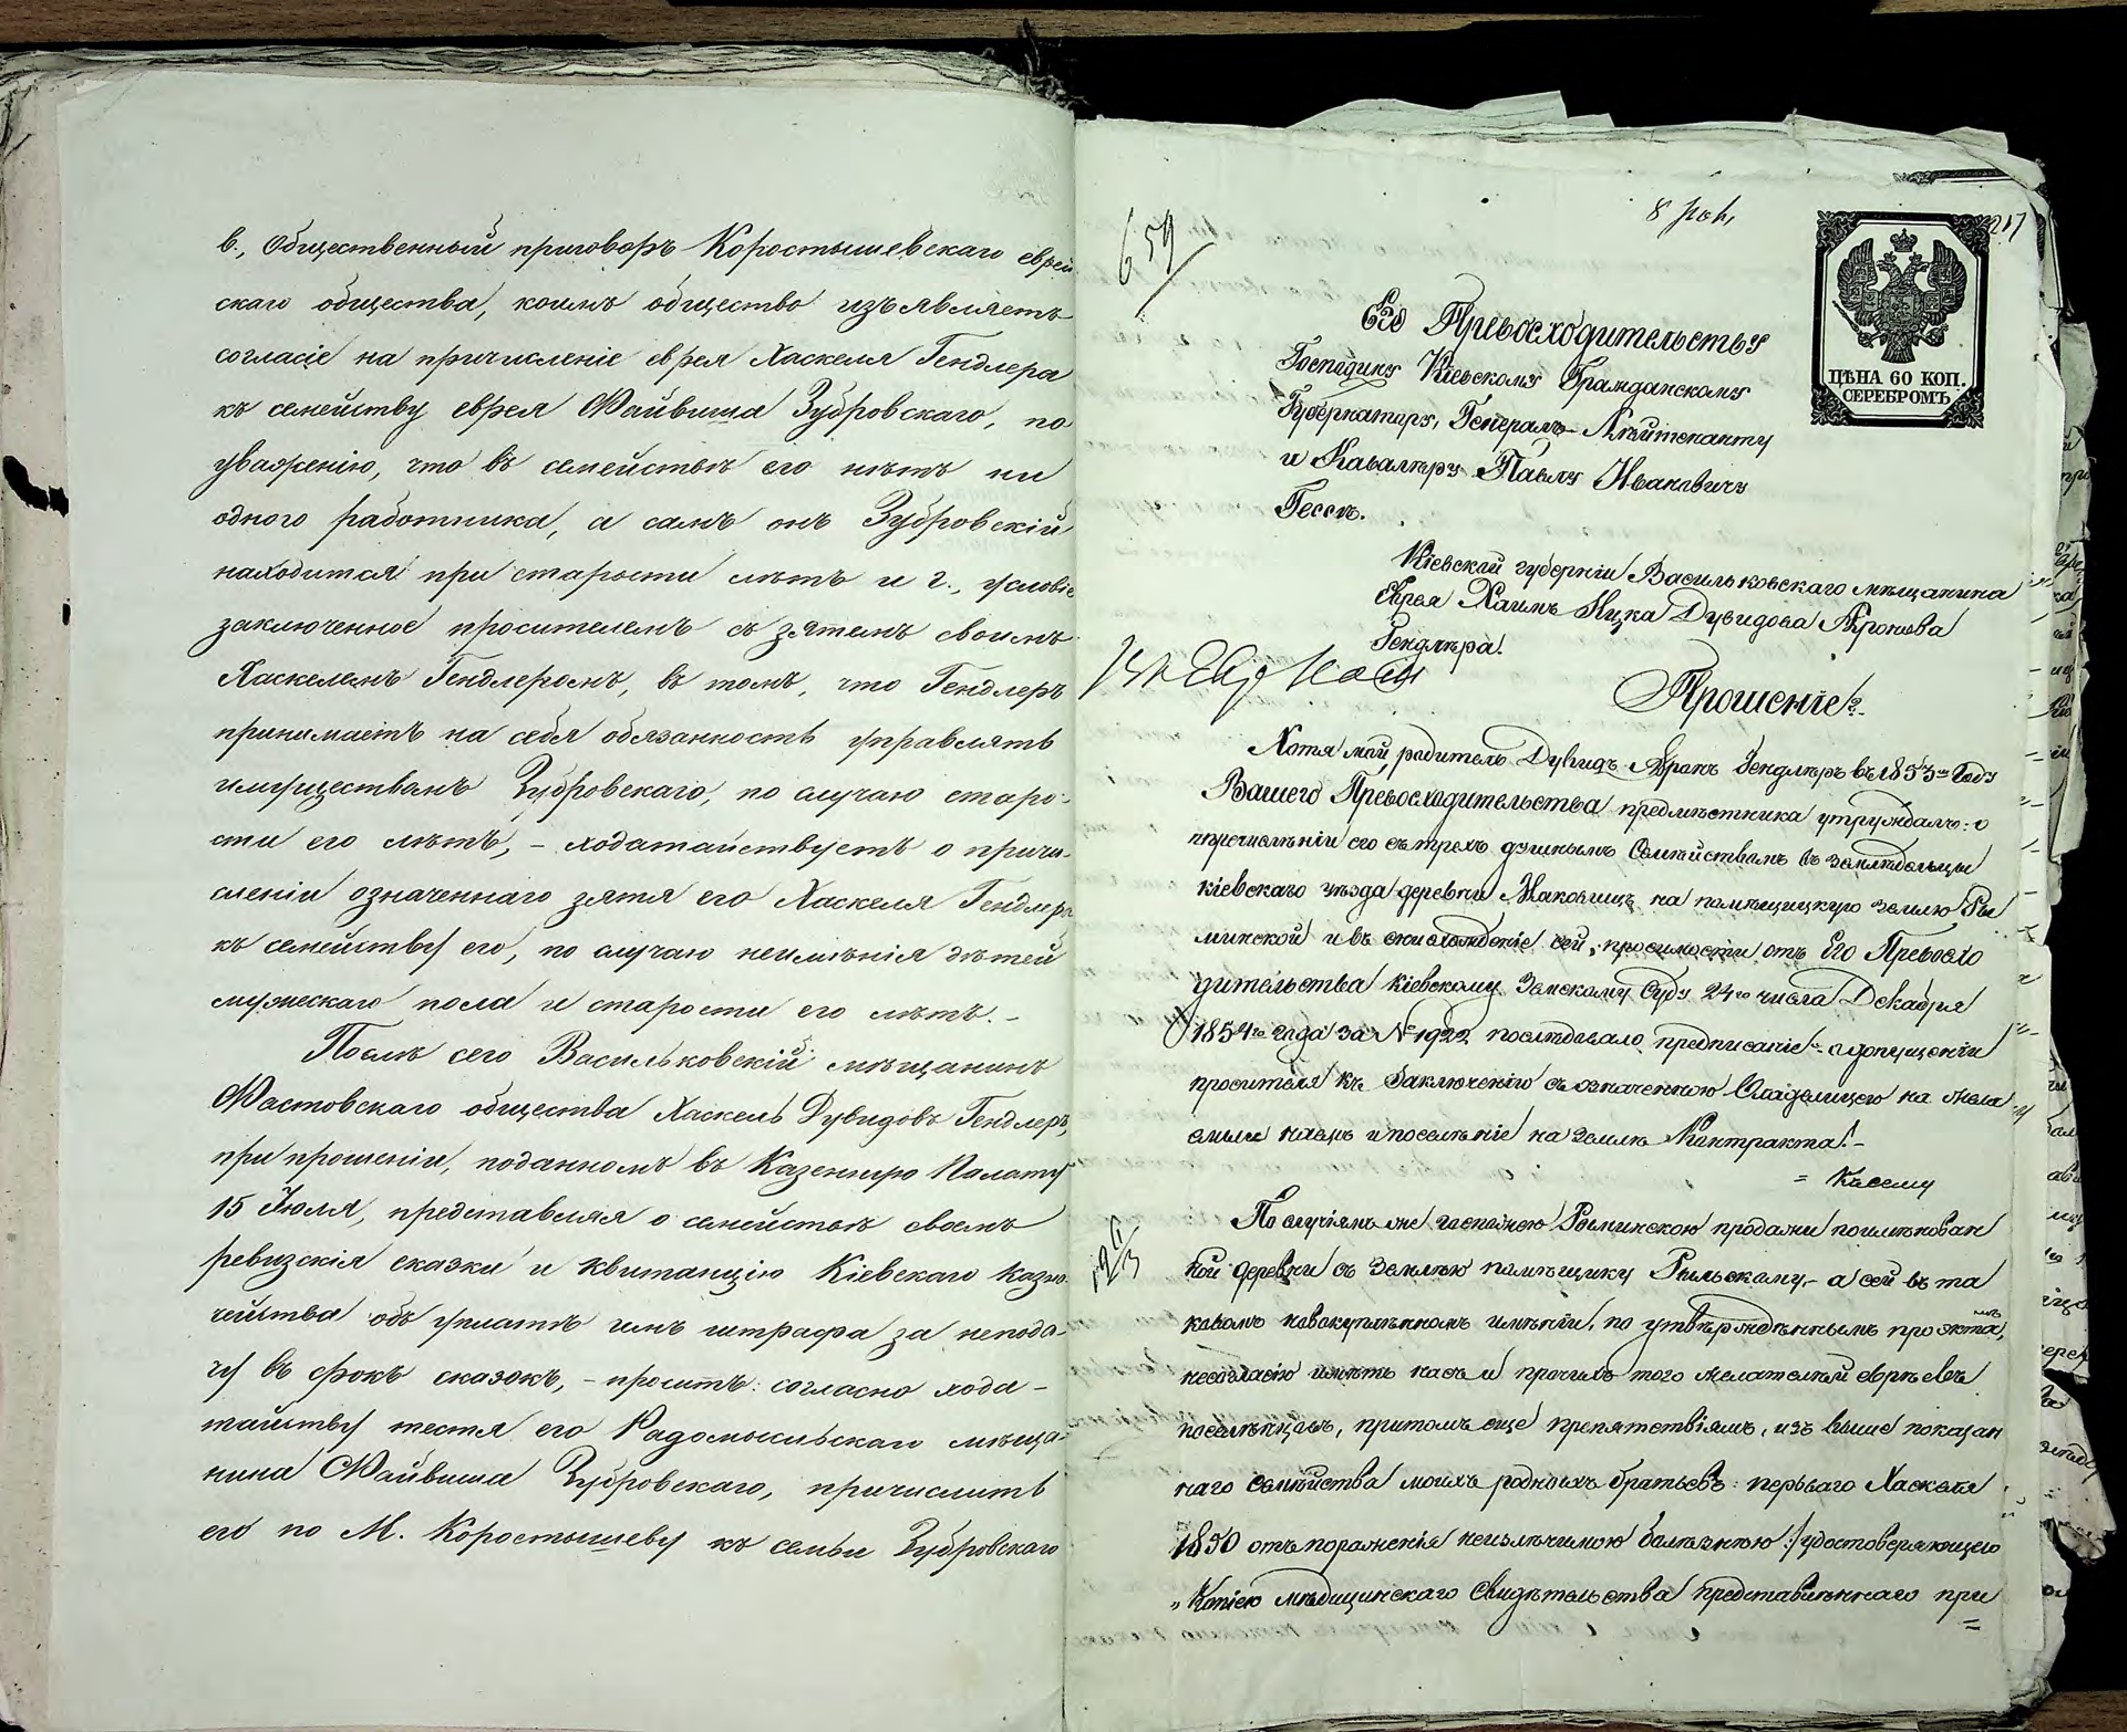 в., Общественный приговоръ Коростышевскаго еврей
скаго общества, коимъ общество изъявляетъ
согласіе на причисленіе еврея Хаскеля Гендлера
къ семейству еврея Файвиша Зубровскаго, по
уваженію, что въ семействѣ его нѣтъ ни
одного работника, а самъ онъ Зубровскій
находится при старости лѣтъ и г., условіе
заключенное просителемъ съ зятемъ своимъ
Хаскелемъ Гендлеромъ, въ томъ, что Гендлеръ
принимаетъ на себя обязанность управлять
имуществомъ Зубровскаго, по случаю старо-
сти его лѣтъ, – ходатайствуетъ о причи-
сленіи означеннаго зятя его Хаскеля Гендлера
къ семейству его, по случаю неимѣнія дѣтей
мужескаго пола и старости его лѣтъ. –
Послѣ сего Васильковскій мѣщанинъ
Фастовскаго общества Хаскель Дувидовъ Гендлеръ,
при прошеніи, поданномъ въ Казенную Палату
15 Іюля, представляя о семействѣ своемъ
ревизскія сказки и квитанцію Кіевскаго Казна-
чейства объ уплатѣ имъ штрафа за непода-
чу въ срокъ сказокъ, – проситъ: согласно хода-
тайству тестя его Радомысльскаго мѣща-
нина Файвиша Зубровскаго, причислить
его по М. Коростышеву къ семьи Зубровскаго
659
8
217
ЦѢНА 60 КОП.
СЕРЕБРОМЪ
Его Превосходительству
Господину Кіевскому Гражданскому
Губернатору, Генералъ-Лѣйтенанту
и Кавалѣру Павлу Ивановичу
Гессѣ.
Кіевской губерніи Васильковскаго мѣщанина
Еврея Хаимъ Ицка Дувидова Аронова
Гендлѣра.
Прошеніе
Хотя мой родитель Дувидъ Аронъ Гендлѣръ въ 1853мъ Году
Вашего Превосходительства предмѣстника утруждалъ: о
пѣречислѣніи его съ трехъ душнымъ Семѣйствамъ въ землѣдельцы
кіевскаго уѣзда деревни Маковищъ на помѣщицкую землю Ры
минской и въ снисхожденіе сей, просимости отъ Его Превосхо
дительства Кіевскому Земскому Суду 24го числа Декабря
1854го года за № 1922 послѣдовало предписаніе о допущеніи
просителя къ Заключенію съ означенною Владелицею на
наемъ и поселѣніе на Землѣ Контракта. –
= Къ сему
По случіямъ же госпожею Рыминскою продажи поимѣнован
ной деревни съ Землѣю помѣщику Рыльскому, – а сей въ та
ковомъ новокуплѣнномъ имѣніи, по утвѣржденнымъ проэкта,
несогласію имѣть насъ и прочихъ того желателѣй еврѣевъ
поселѣнцовъ, притомъ еще препятствіямъ, изъ выше показан
наго Семѣйства моихъ родныхъ братьевъ: перваго Хаскеля
1850 отъ пораженія неизлѣчимою болѣзнѣю /удостоверяющего
„Копіею мѣдицинскаго Свидѣтельства представлѣннаго при
=